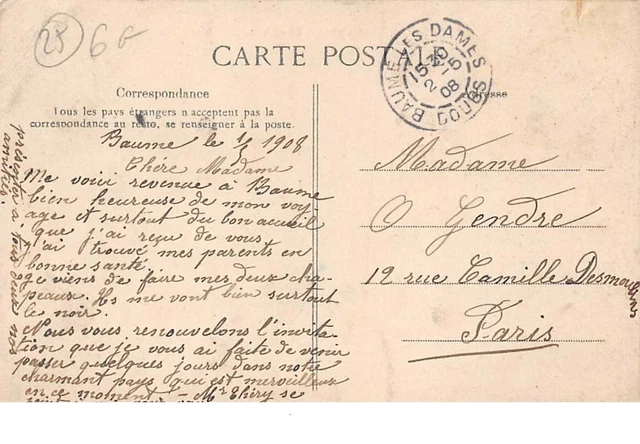 25
6 G
CARTE POSTALE
BAUME-LES-DAMES
DOUBS
15 30
2 - 5
08
Correspondance
Tous les pays étrangers n'acceptent pas la
correspondance au recto, se renseigner à la poste.
Adresse
Baume le 1/5 1908
Chère Madame
Me voici revenue à Baume
bien heureuse de mon voy
age et surtout du bon accueil
que j'ai reçu de vous.
J'ai trouvé mes parents en
bonne santé
je viens de faire mes deux cha-
peaux. Ils me vont bien surtout
le noir.
Nous vous renouvelons l'invita-
tion que je vous ai faite de venir
passer quelques jours dans notre
charmant pays qui est merveilleux
en ce moment - Mr Théry se
à tous deux nos
amitiés.
Madame
O Gendre
12 rue Camille Desmoulins
Paris